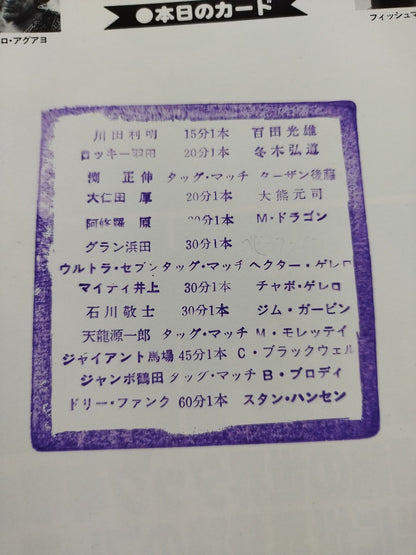 ロ・アグアヨ
●本日のカード
フィッシュマ
川田利明 15分1本 百田光雄
ロッキー羽田 20分1本 冬木弘道
渕 正伸 タッグ・マッチ ターザン後藤
大仁田 厚 20分1本 大熊元司
阿修羅 原 30分1本 M・ドラゴン
グラン浜田 30分1本
ウルトラ・セブン タッグ・マッチ ヘクター・ゲレロ
マイティ井上 30分1本 チャボ・ゲレロ
石川敬士 30分1本 ジム・ガービン
天龍源一郎 タッグ・マッチ M・モレッティ
ジャイアント馬場 45分1本 C・ブラックウェル
ジャンボ鶴田 タッグ・マッチ B・ブロディ
ドリー・ファンク 60分1本 スタン・ハンセン